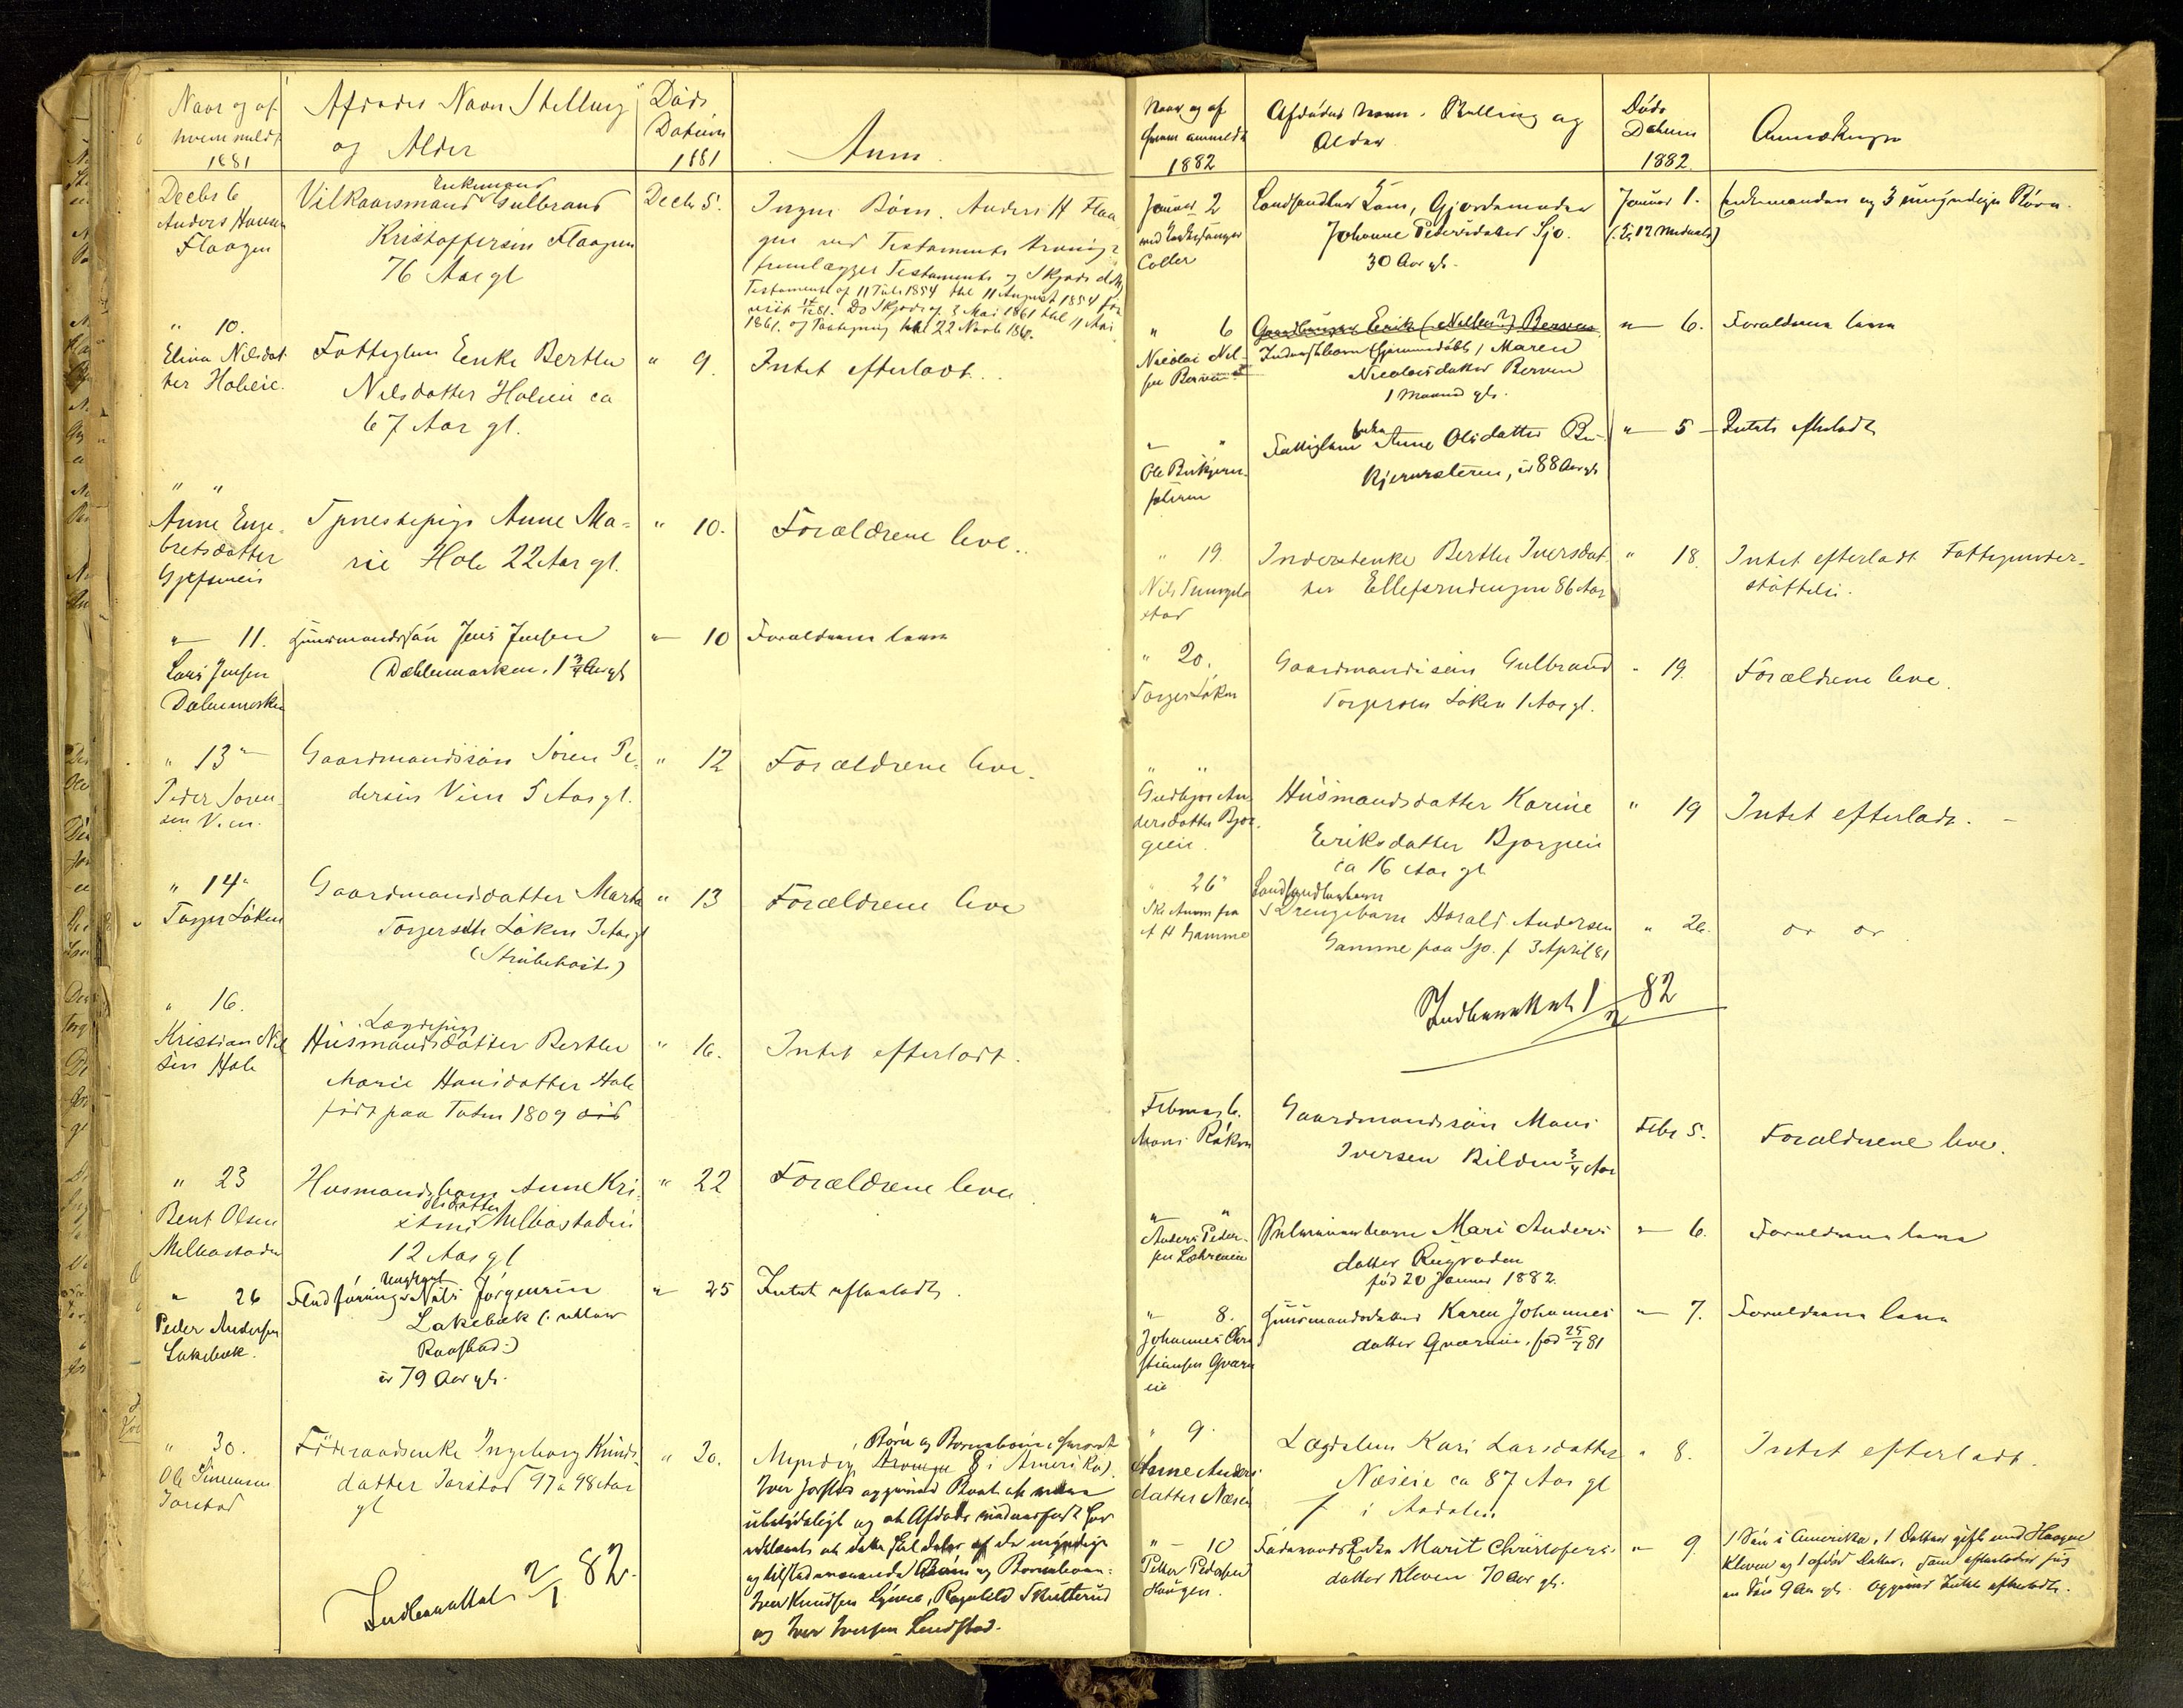 Naar og af
hvem meldt
1881
Afdødes Navn Stilling
og Alder
Døds
Datum
1881
Anm.
Decbr 6
Anders Hansen
Flaagen
Enkemand
Vilkaarsmand Gulbrand
Kristoffersen Flaagen
76 Aar gl
Decbr 5.
Ingen Børn. Anders H Flaa
gen ved Testamente
fremlægger Testamente og Skjøde
Testamente af 11 Juli 1854 thl 11 August 1854
Do Skjøde af 3 Mai 1861 thl 11 Mai
1861. og thl 22 Novb
" 10.
Elina Nilsdat
ter Holeie.
Fattiglem Enke Berthe
Nilsdatter Holeie ca
67 Aar gl.
" 9.
Intet efterladt.
" "
Anne Enge
bretsdatter
Tjenestepige Anne Ma=
rie Hole 22 Aar gl.
" 10.
Forældrene leve.
" 11.
Lars Jensen
Dælenmarken
Huusmandssøn Jens Jensen
Dæhlenmarken. 1 3/4 Aar gl
" 10
Forældrene leve
" 13
Peder Søren
sen Vien.
Gaardmandssøn Søren Pe
dersen Vien 5 Aar gl.
" 12
Forældrene leve.
" 14
Torger Løken
Gaardmandsdatter Marte
Torgersdtr Løken 3 Aar gl
(Strubehoste)
" 13
Forældrene leve
" 16.
Kristian Nil
sen Hole
Lægdspige
Husmandsdatter Berthe
Marie Hansdatter Hole
født paa Toten 1809
" 16.
Intet efterladt.
" 23
Bent Olsen
Melbostaden
Husmandsbarn Anne Kri
Olsdatter
stine Melbostaden
12 Aar gl
" 22
Forældrene leve
" 26
Peder Andersen
Lakebæk.
Ungkarl
Fladføring Nils Jørgensen
Lakebæk (: ellers
Raastad :)
er 79 Aar gl.
" 25
Intet efterladt.
" 30.
Ole Simensen
Jorstad
Føderaadsenke Ingeborg Knuds
datter Jorstad 97 a 98 Aar
gl
" 30.
Børn og Børnebørn, hvoraf
Myndig 8 i Amerika).
Iver Jorstad opgiver Boet at være
ubetydeligt og at Afdøde mundtligt har
udtalt at dette skal deles af de myndige
og tilstedeværende Børn og Børnebørn:
Iver Knudsen Lyseie, Ragnhild Skutterud
og Iver Iversen Lundstad.
Indberettet 2/1 82.
Naar og af
hvem anmeldt
1882
Afdødes Navn. Stilling og
Alder
Døds
Datum
1882.
Anmærkning
Januar 2
Coller
Johanne Pedersdatter Sjo.
30 Aar gl.
Januar 1.
Enkemanden og 3 umyndige Børn.
" 6
Nicolai Nil-
sen Berven
Inderstbarn (hjemmedøbt) Maren
Nicolaisdatter Berven
1 Maaned gl.
" 6.
Forældrene leve
" "
Enke
Fattiglem Anne Olsdatter Bir
kjernseteren, er 88 Aar gl
" 5
Intet efterladt
" 19.
Inderstenke Berthe Iversdat
ter Ellefsrudengen 86 Aar
" 18.
Intet efterladt Fattigunder-
støttelse.
" 20.
Torger Løken
Gaardmandssøn Gulbrand
Torgersen Løken 1 Aar gl.
" 19.
Forældrene leve.
" "
Gudbjør An
dersdatter Bjør
geeie.
Husmandsdatter Karine
Eriksdatter Bjørgeeie
ca 16 Aar gl
" 19
Intet efterladt.
" 26
A H Gamme
Landhandlerbarn
Drengebarn Harald Andersen
Gamme paa Sjo. f 3 April 81
" 26.
do do
Indberettet 1/2 82
Februar 6.
Mons Røken
Gaardmandssøn Mons
Iversen Bilden 3/4 Aar
Febr 5.
Forældrene leve.
" "
Anders Peder-
sen Løkreneie
Mari Anders
datter Rugraden
fød 20 Januar 1882.
" 6.
Forældrene leve
" 8.
Johannes Chri
stiansen Qværn
eie
Huusmandsdatter Karen Johannes
datter Qværneie. fød 25/7 81
" 7.
Forældrene leve
" 9.
Anne Anders
datter Næseie
Lægdslem Kari Larsdatter
Næseie ca 87 Aar gl
f i Aadalen
" 8.
Intet efterladt.
" 10
Petter Pedersen
Haugen.
Føderaads Enke Marit Christofers
datter Kleven 70 Aar gl.
" 9
1 Søn i Amerika, 1 Datter gift med Haagen
Kleven og 1 afdød Datter, som efterlader sig
en Søn 9 Aar gl. Opgives Intet efterladt.